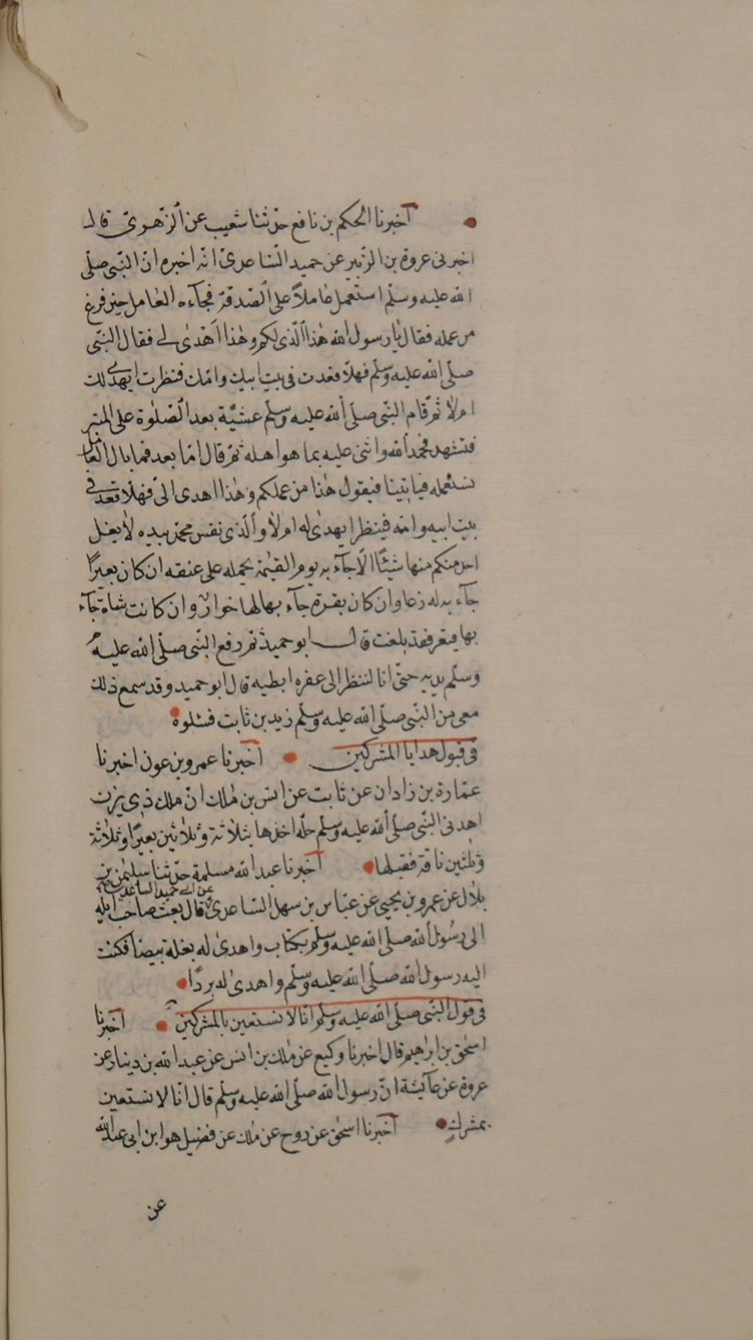 اخبرنا الحكم بن نافع حدثنا شعيب عن الزهري قال
اخبرني عروة بن الزبير عن حميد الساعدي انه اخبره ان النبي صلى
الله عليه وسلم استعمل عاملا على الصدقة فجآءه العامل حين فرغ
من عمله فقال يا رسول الله هذا الذي لكم وهذا اهدى لي فقال النبي
صلى الله عليه وسلم فهلا قعدت في بيت ابيك وامك فنظرت ايهدى لك
ام لا ثم قام النبي صلى الله عليه وسلم عشية بعد الصلوة على المنبر
فتشهد فحمد الله واثنى عليه بما هو اهله ثم قال اما بعد فما بال العامل
نستعمله فياتينا فيقول هذا من عملكم وهذا اهدى الى فهلا قعد في
بيت ابيه وامه فينظر ايهدى له ام لا والذي نفس محمد بيده لا يغل
احد منكم منها شيئا الا جآء به يوم القيمة يحمله على عنقه ان كان بعيرا
جآء به له رغا وان كان بقرة جآء بها لها خوار وان كانت شاة جآء
بها تيعر فقد بلغت قال ابو حميد ثم رفع النبي صلى الله عليه
وسلم يديه حتى انا لننظر الى عفره ابطيه قال ابو حميد وقد سمع ذلك
معي من النبي صلى الله عليه وسلم زيد بن ثابت فسلوه
في قبول هدايا المشركين اخبرنا عمرو بن عون اخبرنا
عمارة بن زادان عن ثابت عن انس بن ملك ان ملك ذي يزن
اهدى النبي صلى الله عليه وسلم حلة اخذها بثلاثة وثلاثين بعيرا وثلاثة
وثلثين ناقة فقبلها اخبرنا عبد الله مسلمة حدثنا سليمن بن
عن ابي حميد الساعدي
بلال عن عمرو بن يحيى عن عباس بن سهل الساعدي قال بعث صاحب ايلة
الى رسول الله صلى الله عليه وسلم بكتاب واهدى له بغلة بيضا فكتب
اليه رسول الله صلى الله عليه وسلم واهدى له بردا
في قول النبي صلى الله عليه وسلم انا لا نستعين بالمشركين اخبرنا
اسحق بن ابراهيم قال اخبرنا وكيع عن ملك بن انس عن عبد الله بن دينار عن
عروة عن عآئشة ان رسول الله صلى الله عليه وسلم قال انا لا نستعين
بمشرك اخبرنا اسحق عن روح عن ملك عن فضيل هو ابن ابي عبد الله
عن